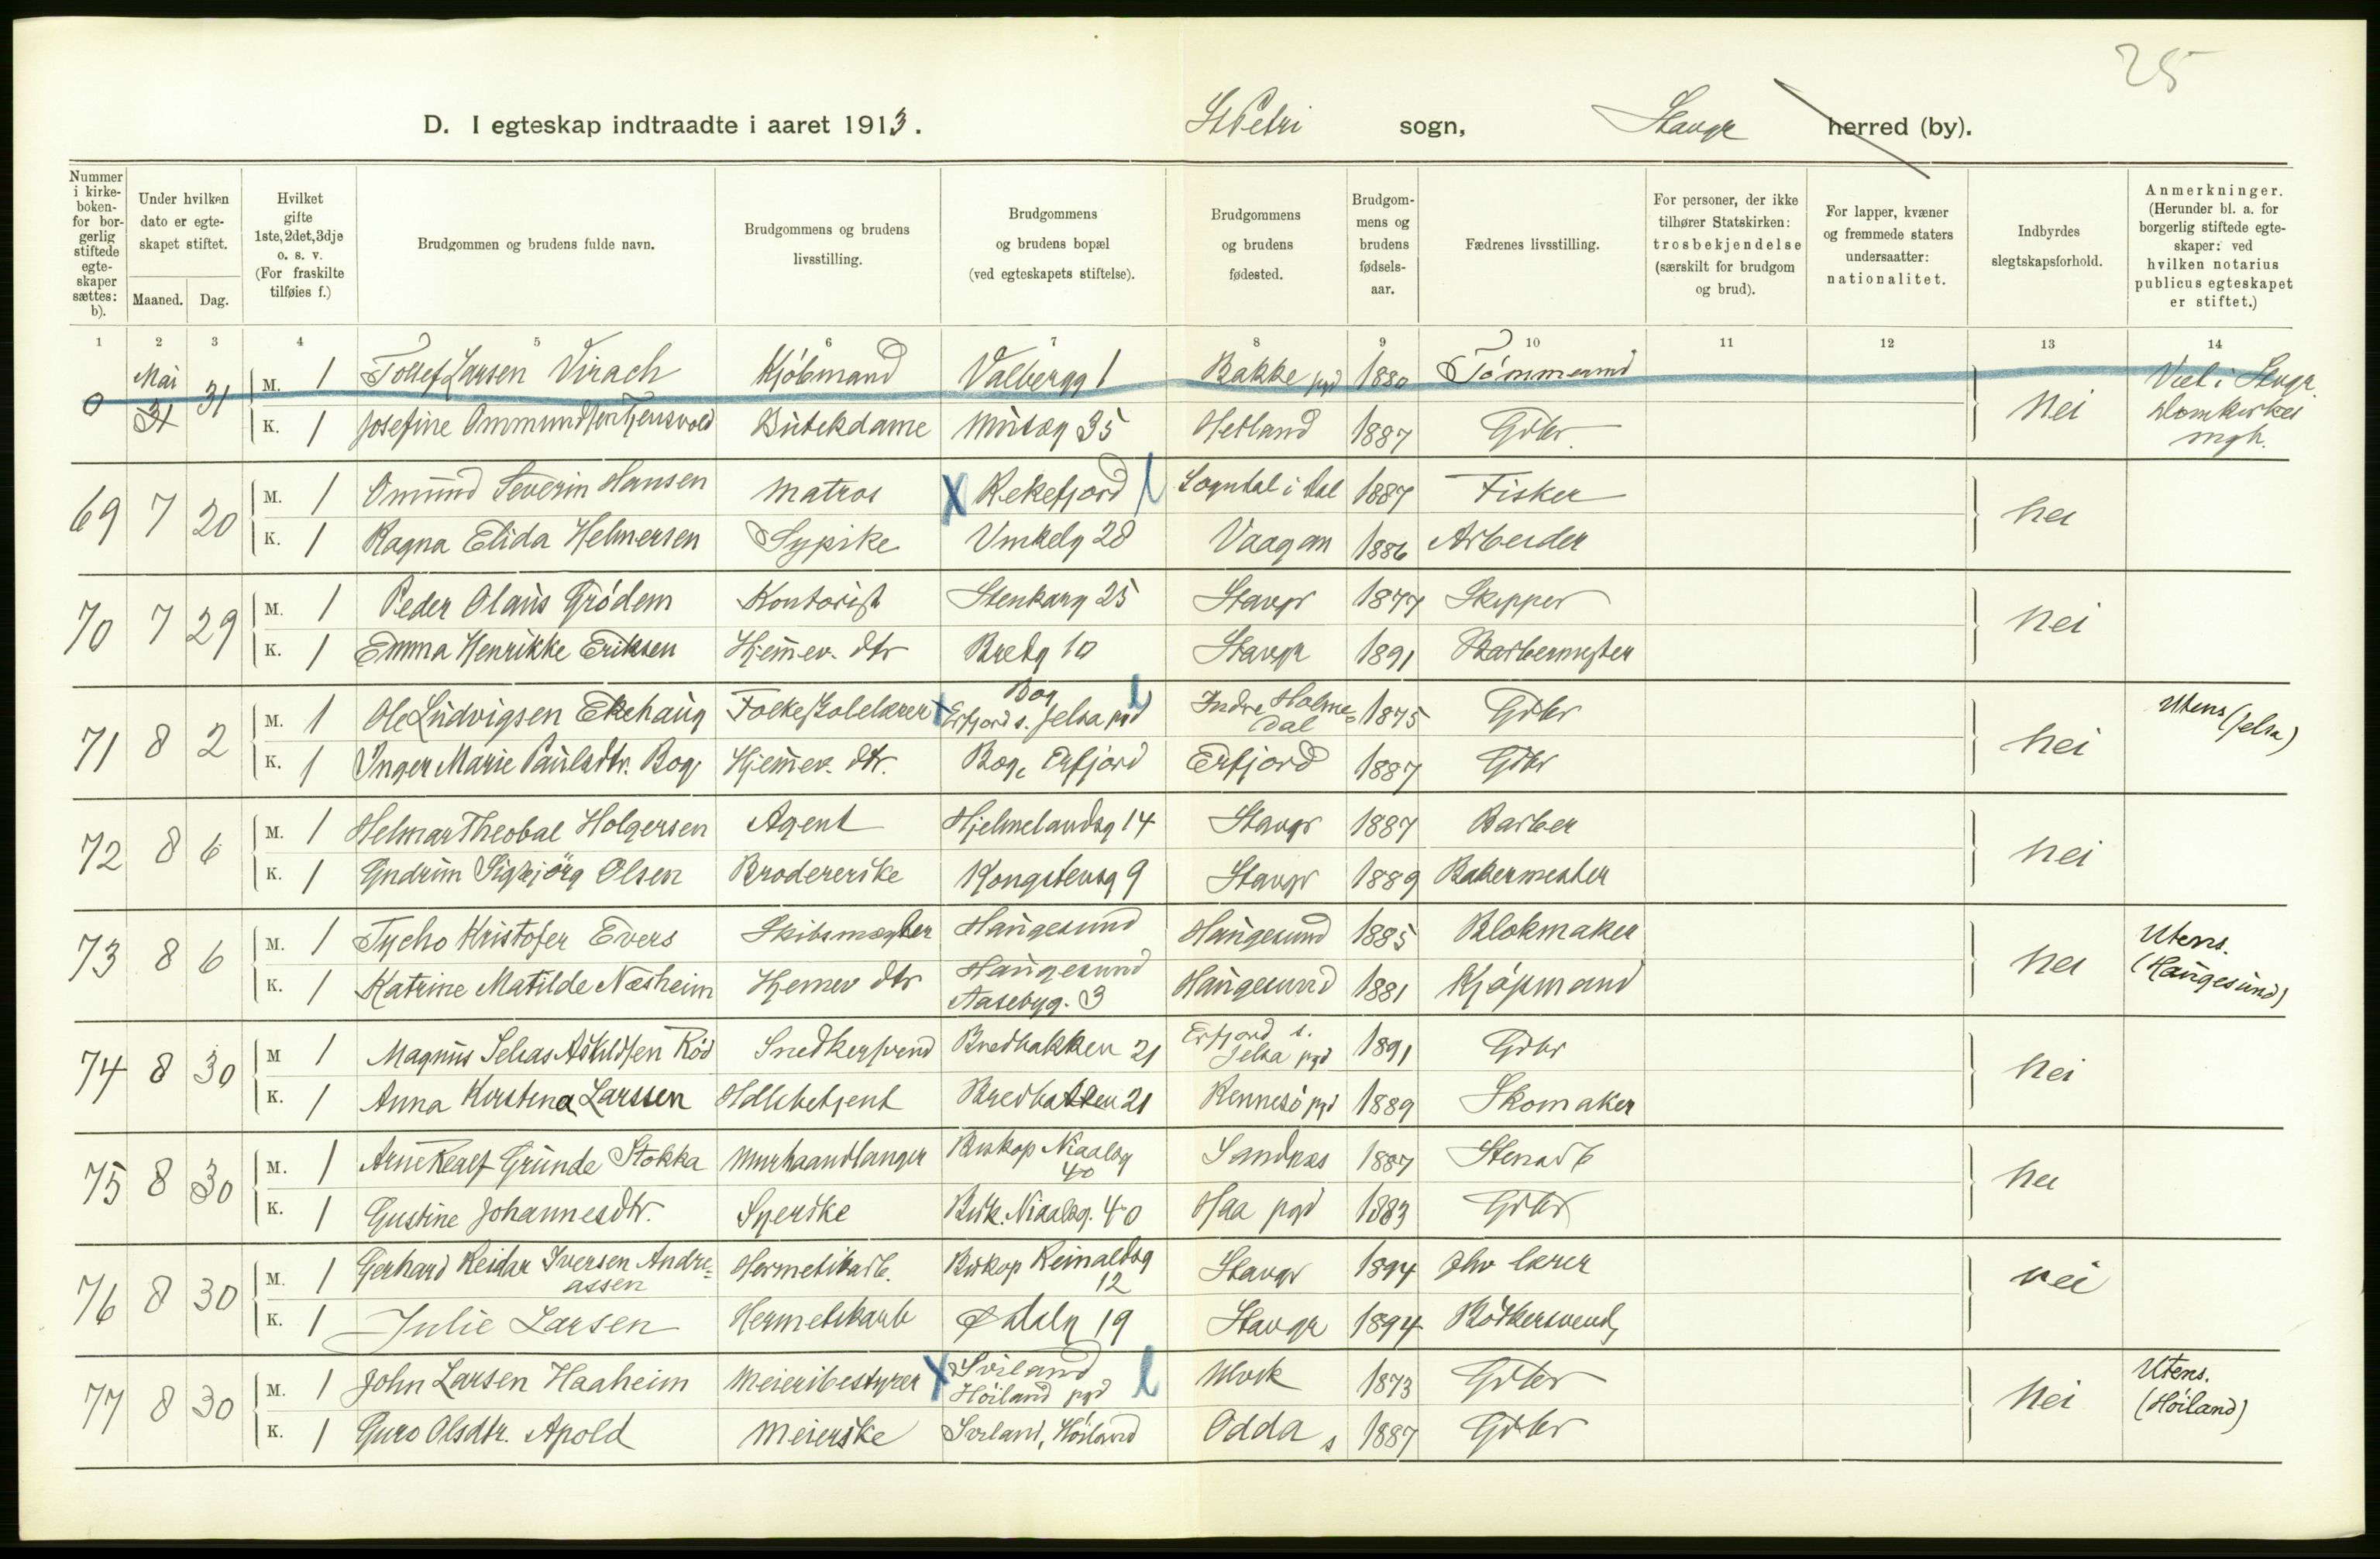 25
D. I egteskap indtraadte i aaret 1913. St Petri sogn, Stavgr herred (by).
Nummer i kirkeboken- for borgerlig stiftede egteskaper sættes: b).
Under hvilken dato er egteskapet stiftet.
Maaned. Dag.
Hvilket gifte 1ste, 2det, 3dje o. s. v. (For fraskilte tilføies f.)
Brudgommen og brudens fulde navn.
Brudgommens og brudens livsstilling.
Brudgommens og brudens bopæl (ved egteskapets stiftelse).
Brudgommens og brudens fødested.
Brudgommens og brudens fødselsaar.
Fædrenes livsstilling.
For personer, der ikke tilhører Statskirken: trosbekjendelse (særskilt for brudgom og brud).
For lapper, kvæner og fremmede staters undersaatter: nationalitet.
Indbyrdes slegtskapsforhold.
Anmerkninger. (Herunder bl. a. for borgerlig stiftede egteskaper: ved hvilken notarius publicus egteskapet er stiftet.)
1 2 3 4 5 6 7 8 9 10 11 12 13 14
0 Mai 31 31 M. 1 Tollef Larsen Virach Kjöbmand Valbergg 1 Bakke pgd 1880 Tömmermd nei Viet i Stavgr. Domkirkes mgh.
K. 1 Josefine Ommundsen Butikdame Musæg 35 Hetland 1887 Gdbr.
69 7 20 M. 1 Omund Severin Hansen Matros X Rekefjord l Sogndal i Dal 1887 Fisker nei
K. 1 Ragna Elida Helmersen Sypike Vinkelg 28 Vaagan 1886 Arbeider
70 7 29 M. 1 Peder Olaus Grödem Kontorist Stenkarg 25 Stavgr 1877 Skipper nei
K. 1 Emma Henrikke Eriksen Hjemmev. dtr Bredg 10 Stavgr 1891 Barbermester
71 8 2 M. 1 Ole Ludvigsen Ekehaug Folkeskolelærer x Bog Erfjord s. Jelsa pgd l Indre Holmedal 1875 Gdbr nei Utens (Jelsa)
K. 1 Inger Marie Paulsdtr. Bog Hjemmev. dtr. Bog, Erfjord Erfjord 1887 Gdbr
72 8 6 M. 1 Helmar Theobal Holgersen Agent Hjelmelandsg 14 Stavgr 1887 Barber nei
K. 1 Gudrun Sigbjörg Olsen Brodererske Kongstensg 9 Stavgr 1889 Bakermester
73 8 6 M. 1 Tycho Kristofer Evers Skibsmægler Haugesund Haugesund 1885 Blokmaker nei Utens. (Haugesund)
K. 1 Katrine Matilde Næsheim Hjemmev dtr Haugesund Aasebyg. 3 Haugesund 1881 Kjöpmand
74 8 30 M 1 Magnus Selias Askildsen Röd Snedkersvend Bredbakken 21 Erfjord s. Jelsa pgd 1891 Gdbr nei
K. 1 Anna Kirstina Larssen Hdlsbetjent Bredbakken 21 Rennesö pgd 1889 Skomaker
75 8 30 M. 1 Arne Realf Grunde Stokka Murhaandlanger Biskop Niaalsg 40 Sandnæs 1887 Stenarb nei
K. 1 Gustine Johannesdtr. Syerske Bisk. Niaalsg. 40 Haa pgd 1883 Gdbr
76 8 30 M. 1 Gerhard Reidar Iversen Andreassen Hermetikarb. Biskop Reinaldsg 12 Stavgr 1894 lærer nei
K. 1 Julie Larsen Hermetikarb Ødalg 19 Stavgr 1894 Bödkersvend
77 8 30 M. 1 John Larsen Haaheim Meieribestyrer X Sviland Höiland pgd l Ulvik 1873 Gdbr nei Utens. (Höiland)
K. 1 Guro Olsdtr. Apold Meierske Sviland, Höiland Odda s 1887 Gdbr